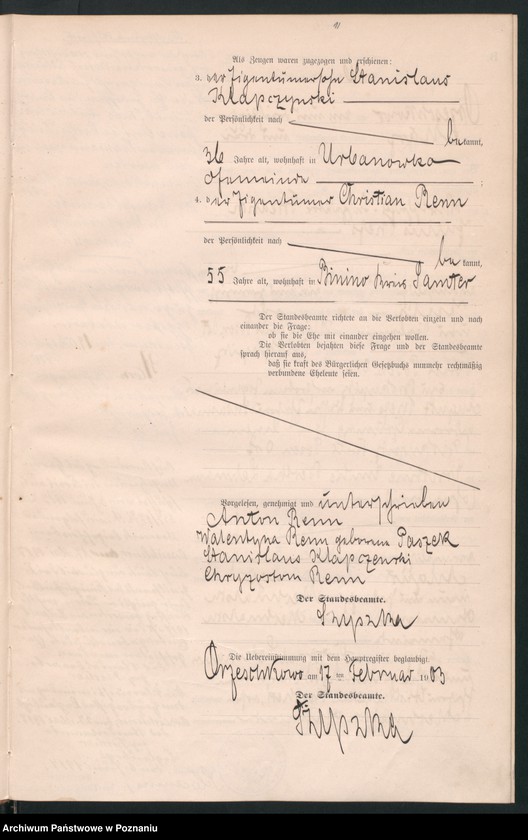 Als Zeugen waren zugezogen und erschienen:
3. der Eigentümersohn Stanislaus
Klapczynski
der Persönlichkeit nach
be kannt,
36 Jahre alt, wohnhaft in Urbanowko
Gemeinde ;
4. der Eigentümer Christian Renn
der Persönlichkeit nach
be kannt,
55 Jahre alt, wohnhaft in Binino Kreis Samter
Der Standesbeamte richtete an die Verlobten einzeln und nach
einander die Frage:
ob sie die Ehe mit einander eingehen wollen.
Die Verlobten bejahten diese Frage und der Standesbeamte
sprach hierauf aus,
daß sie kraft des Bürgerlichen Gesetzbuchs nunmehr rechtmäßig
verbundene Eheleute seien.
Vorgelesen, genehmigt und unterschrieben
Anton Renn
Walentyna Renn geborene Paszek
Stanislaus Klapczenski
Chryzostom Renn
Der Standesbeamte.
Szypzka
Die Uebereinstimmung mit dem Hauptregister beglaubigt
am 17 ten Februar 1903
Der Standesbeamte.
Szypzka
Archiwum Państwowe w Poznaniu